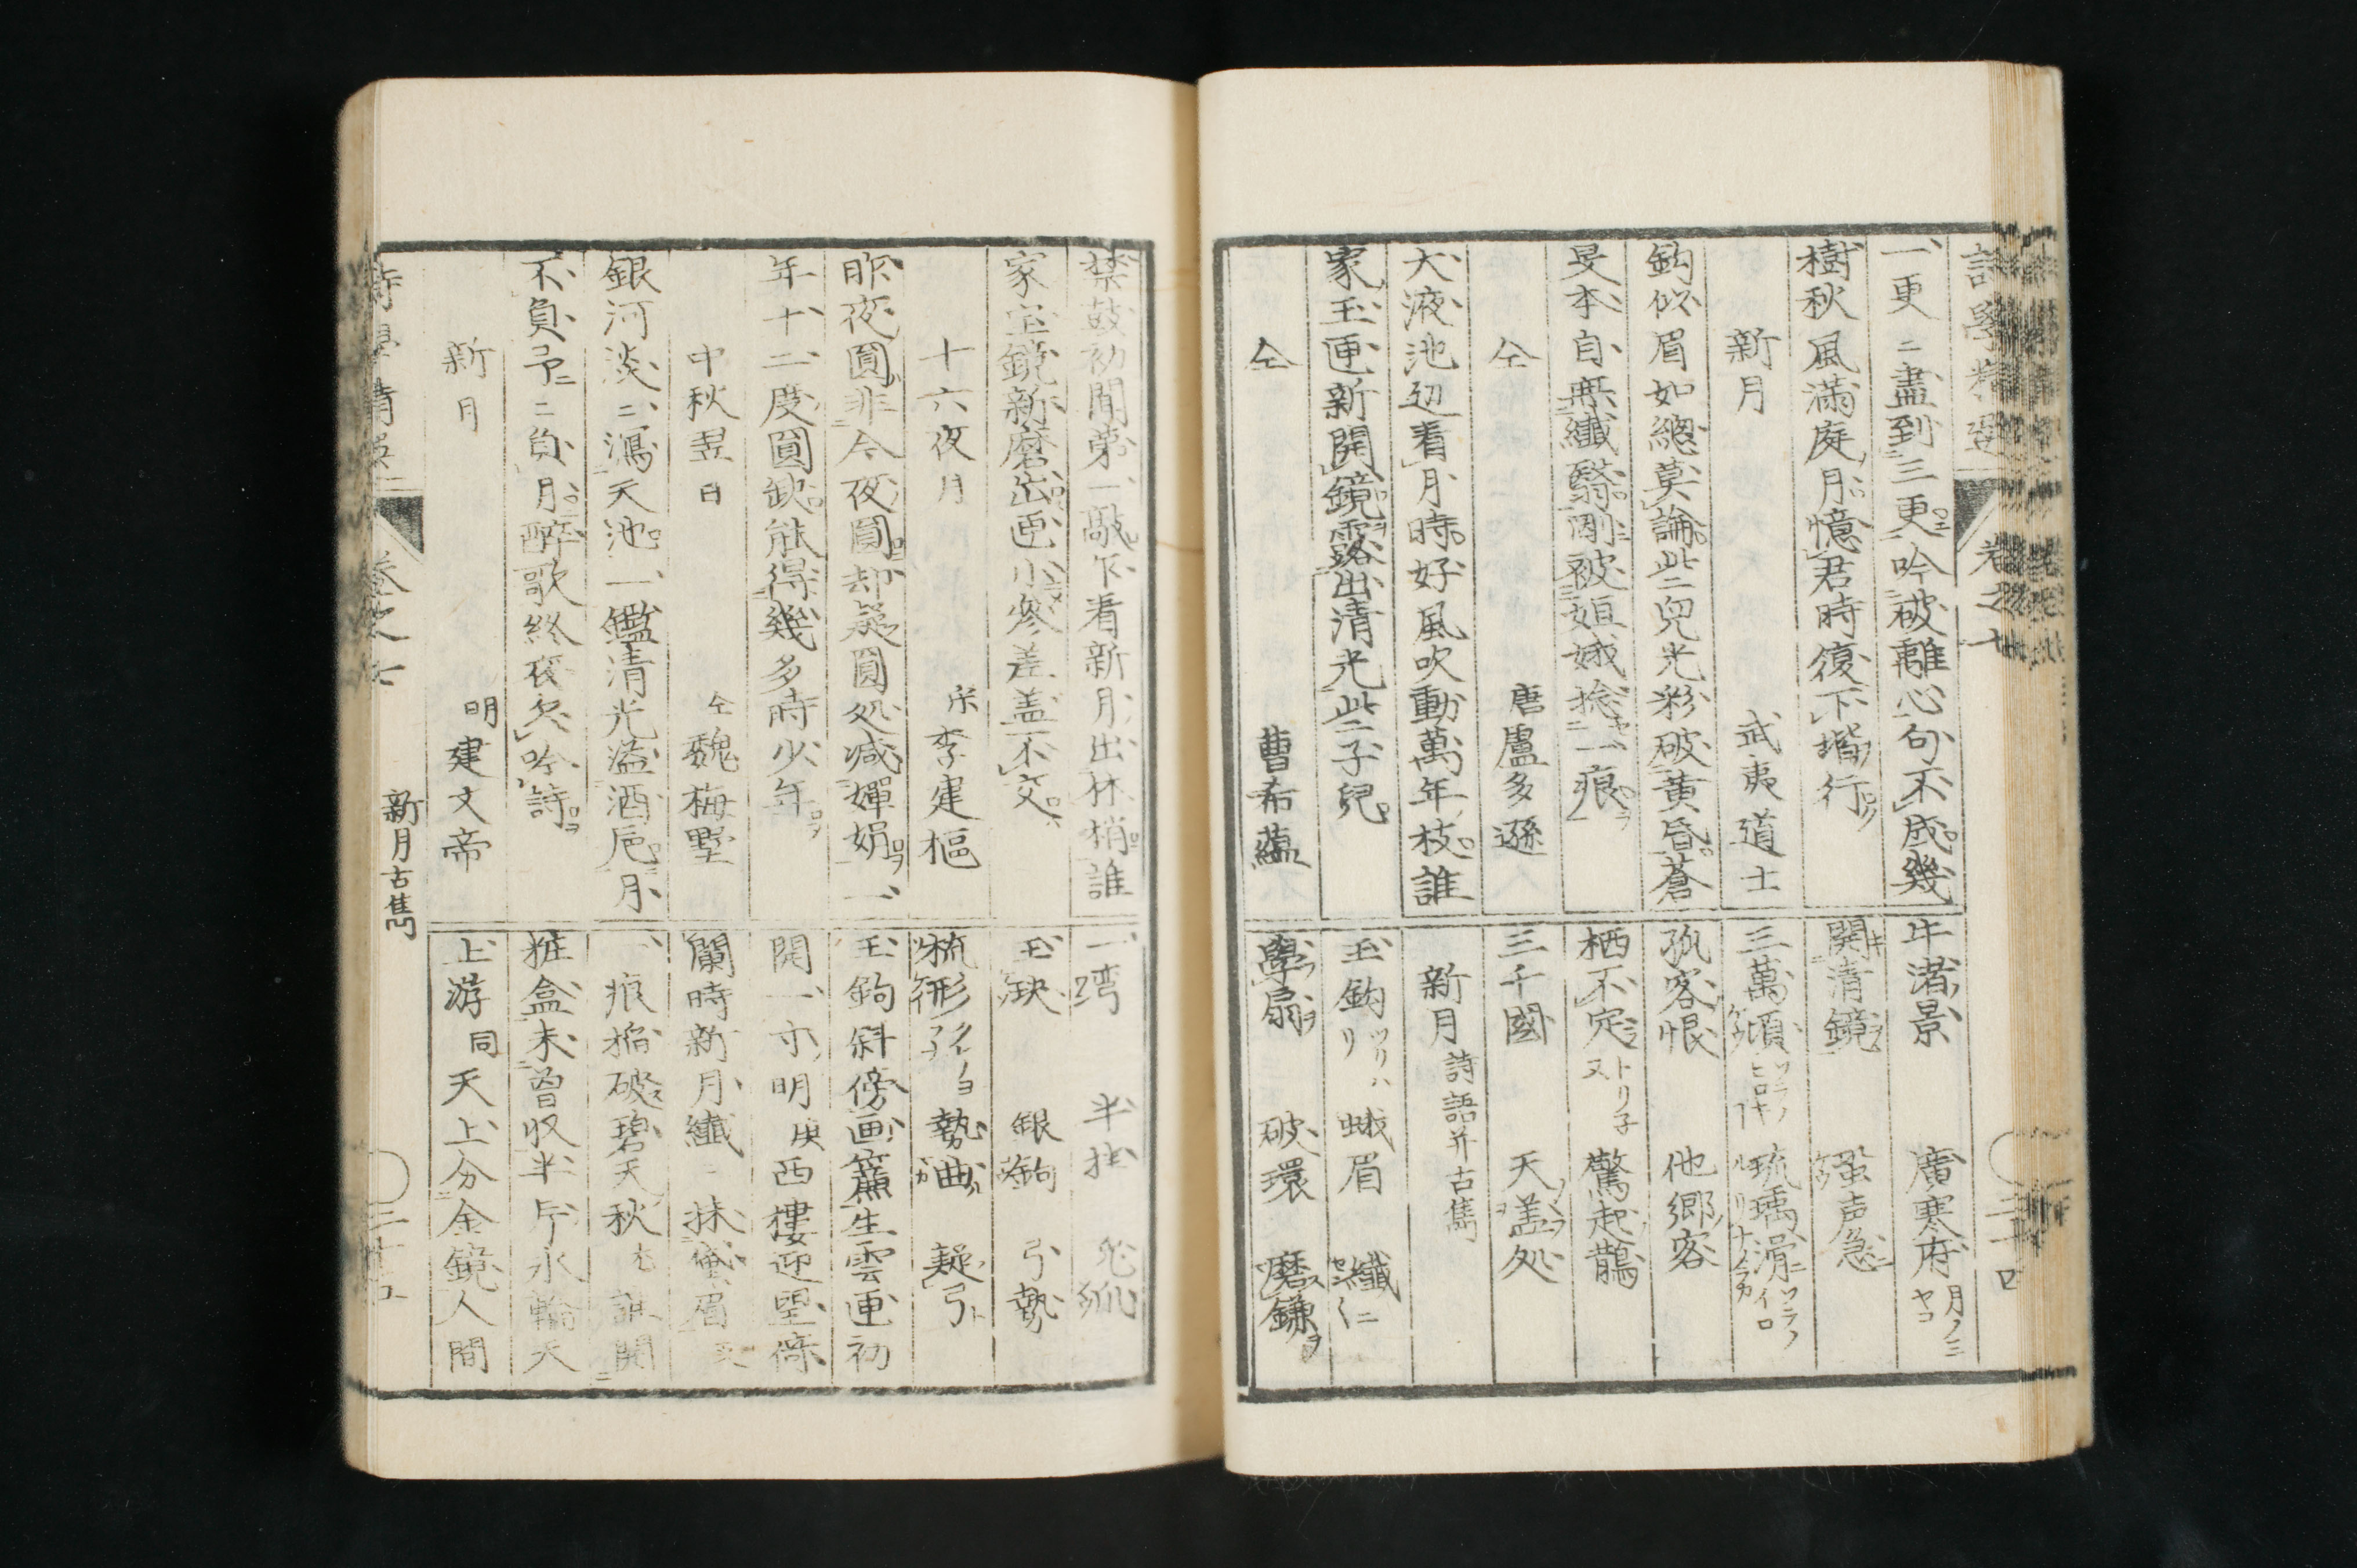 詩學精選 卷之七
一更〻盡到三更吟破離心句不成幾
樹秋風滿庭月憶君時復下堦行
新月 武夷道士
鈎似眉如總莫論些兒光彩破黃昏蒼
旻本自無纖翳剛被姮娥捻一痕
仝 唐盧多遜
大液池辺看月時好風吹動萬年枝誰
家玉匣新開鏡露出清光些子兒
仝 曹希蘊
牛渚景 廣寒府 月ノミヤコ
開清鏡 蛩声急
三萬頃 ソラノヒロキ 琉璃滑 ソラノイロ
孤客恨 他鄉客
栖不定 トリ子ヌ 驚起鵲
三千國 天蓋処
新月 詩語并古雋
玉鈎 ツリハリ 蛾眉 纖〻
學扇 破環 磨鎌
禁鼓初聞第一敲乍看新月出林梢誰
家宝鏡新磨出匣小參差蓋不交
十六夜月 宋李建樞
昨夜圓非今夜圓却疑圓処減嬋娟一
年十二度圓缺能得幾多時少年
中秋翌日 仝魏梅墅
銀河淡〻瀉天池一鑑清光溢酒卮月
不負予〻負月醉歌終夜欠吟詩
新月 明建文帝
一湾 半挂 兔弧
玉玦 銀鉤 弓勢
梳形 勢曲 疑弓
玉鉤斜傍画簷生雲匣初
開一寸明 庚 西樓迎望
闌時新月纖〻抹黛眉
一痕掐破碧天秋 尤 誰開
粧盒未曾収半片氷輪天
上游 同 天上分金鏡人間
新月古雋
詩學精選 卷之七